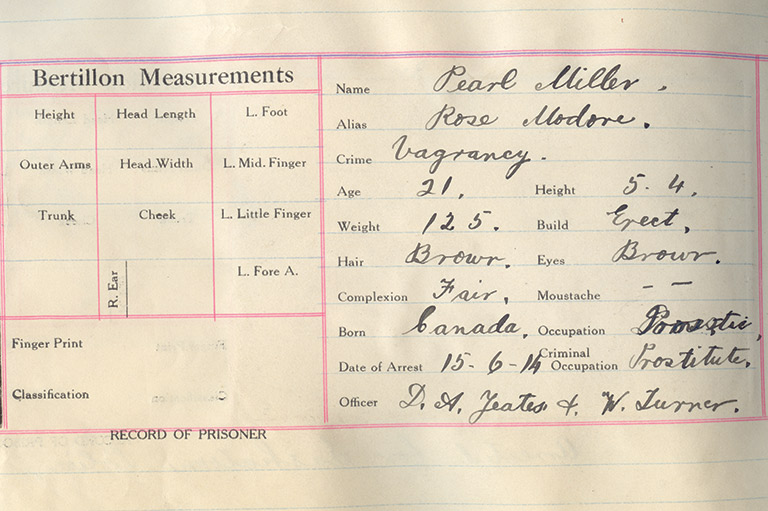 Bertillon Measurements
Height Head Length L. Foot
Outer Arms Head Width L. Mid. Finger
Trunk Cheek L. Little Finger
R. Ear L. Fore A.
Finger Print
Classification
RECORD OF PRISONER
Name Pearl Miller.
Alias Rose Modore.
Crime Vagrancy.
Age 21. Height 5-4.
Weight 125. Build Erect.
Hair Brown. Eyes Brown.
Complexion Fair. Moustache - -
Born Canada. Occupation
Date of Arrest 15-6-14 Criminal Occupation Prostitute.
Officer D. A. Yeates & W. Turner.